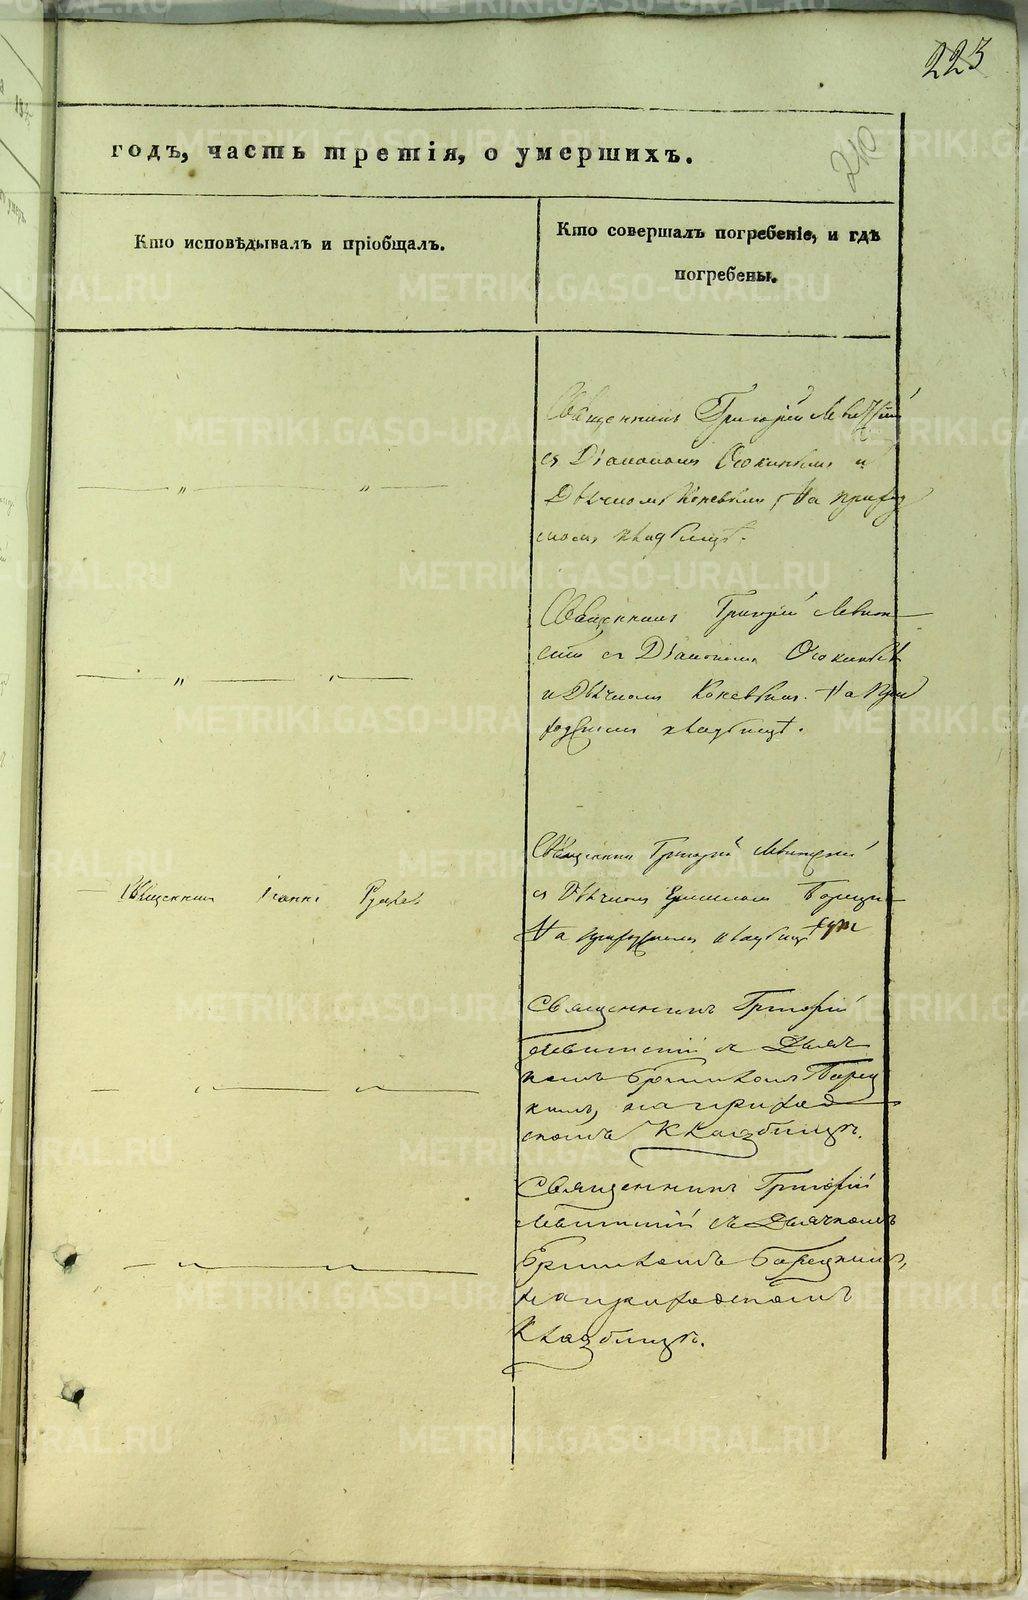 223
240
годъ, часть третія, о умершихъ.
Кто исповѣдывалъ и пріобщалъ.
Кто совершалъ погребеніе, и гдѣ
погребены.
Священникъ Григорій Левитскій
съ Діакономъ Осокинымъ и
Дьячкомъ Коневымъ, На приход
скомъ кладбищѣ.
Священникъ Григорій Левит
скій съ Діакономъ Осокинымъ
и Дьячкомъ Коневымъ. На При
ходскомъ кладбищѣ.
Священникъ Іоаннъ
Священникъ Григорій Левитскій
съ Дьячкомъ
На приходскомъ кладбищѣ
Священникъ Григорій
Левитскій съ Дьяч
комъ
кимъ, на приход
скомъ Кладбищѣ.
Священникъ Григорій
Левитскій съ Дьячкомъ
На приходскомъ
Кладбищѣ.
METRIKI.GASO-URAL.RU